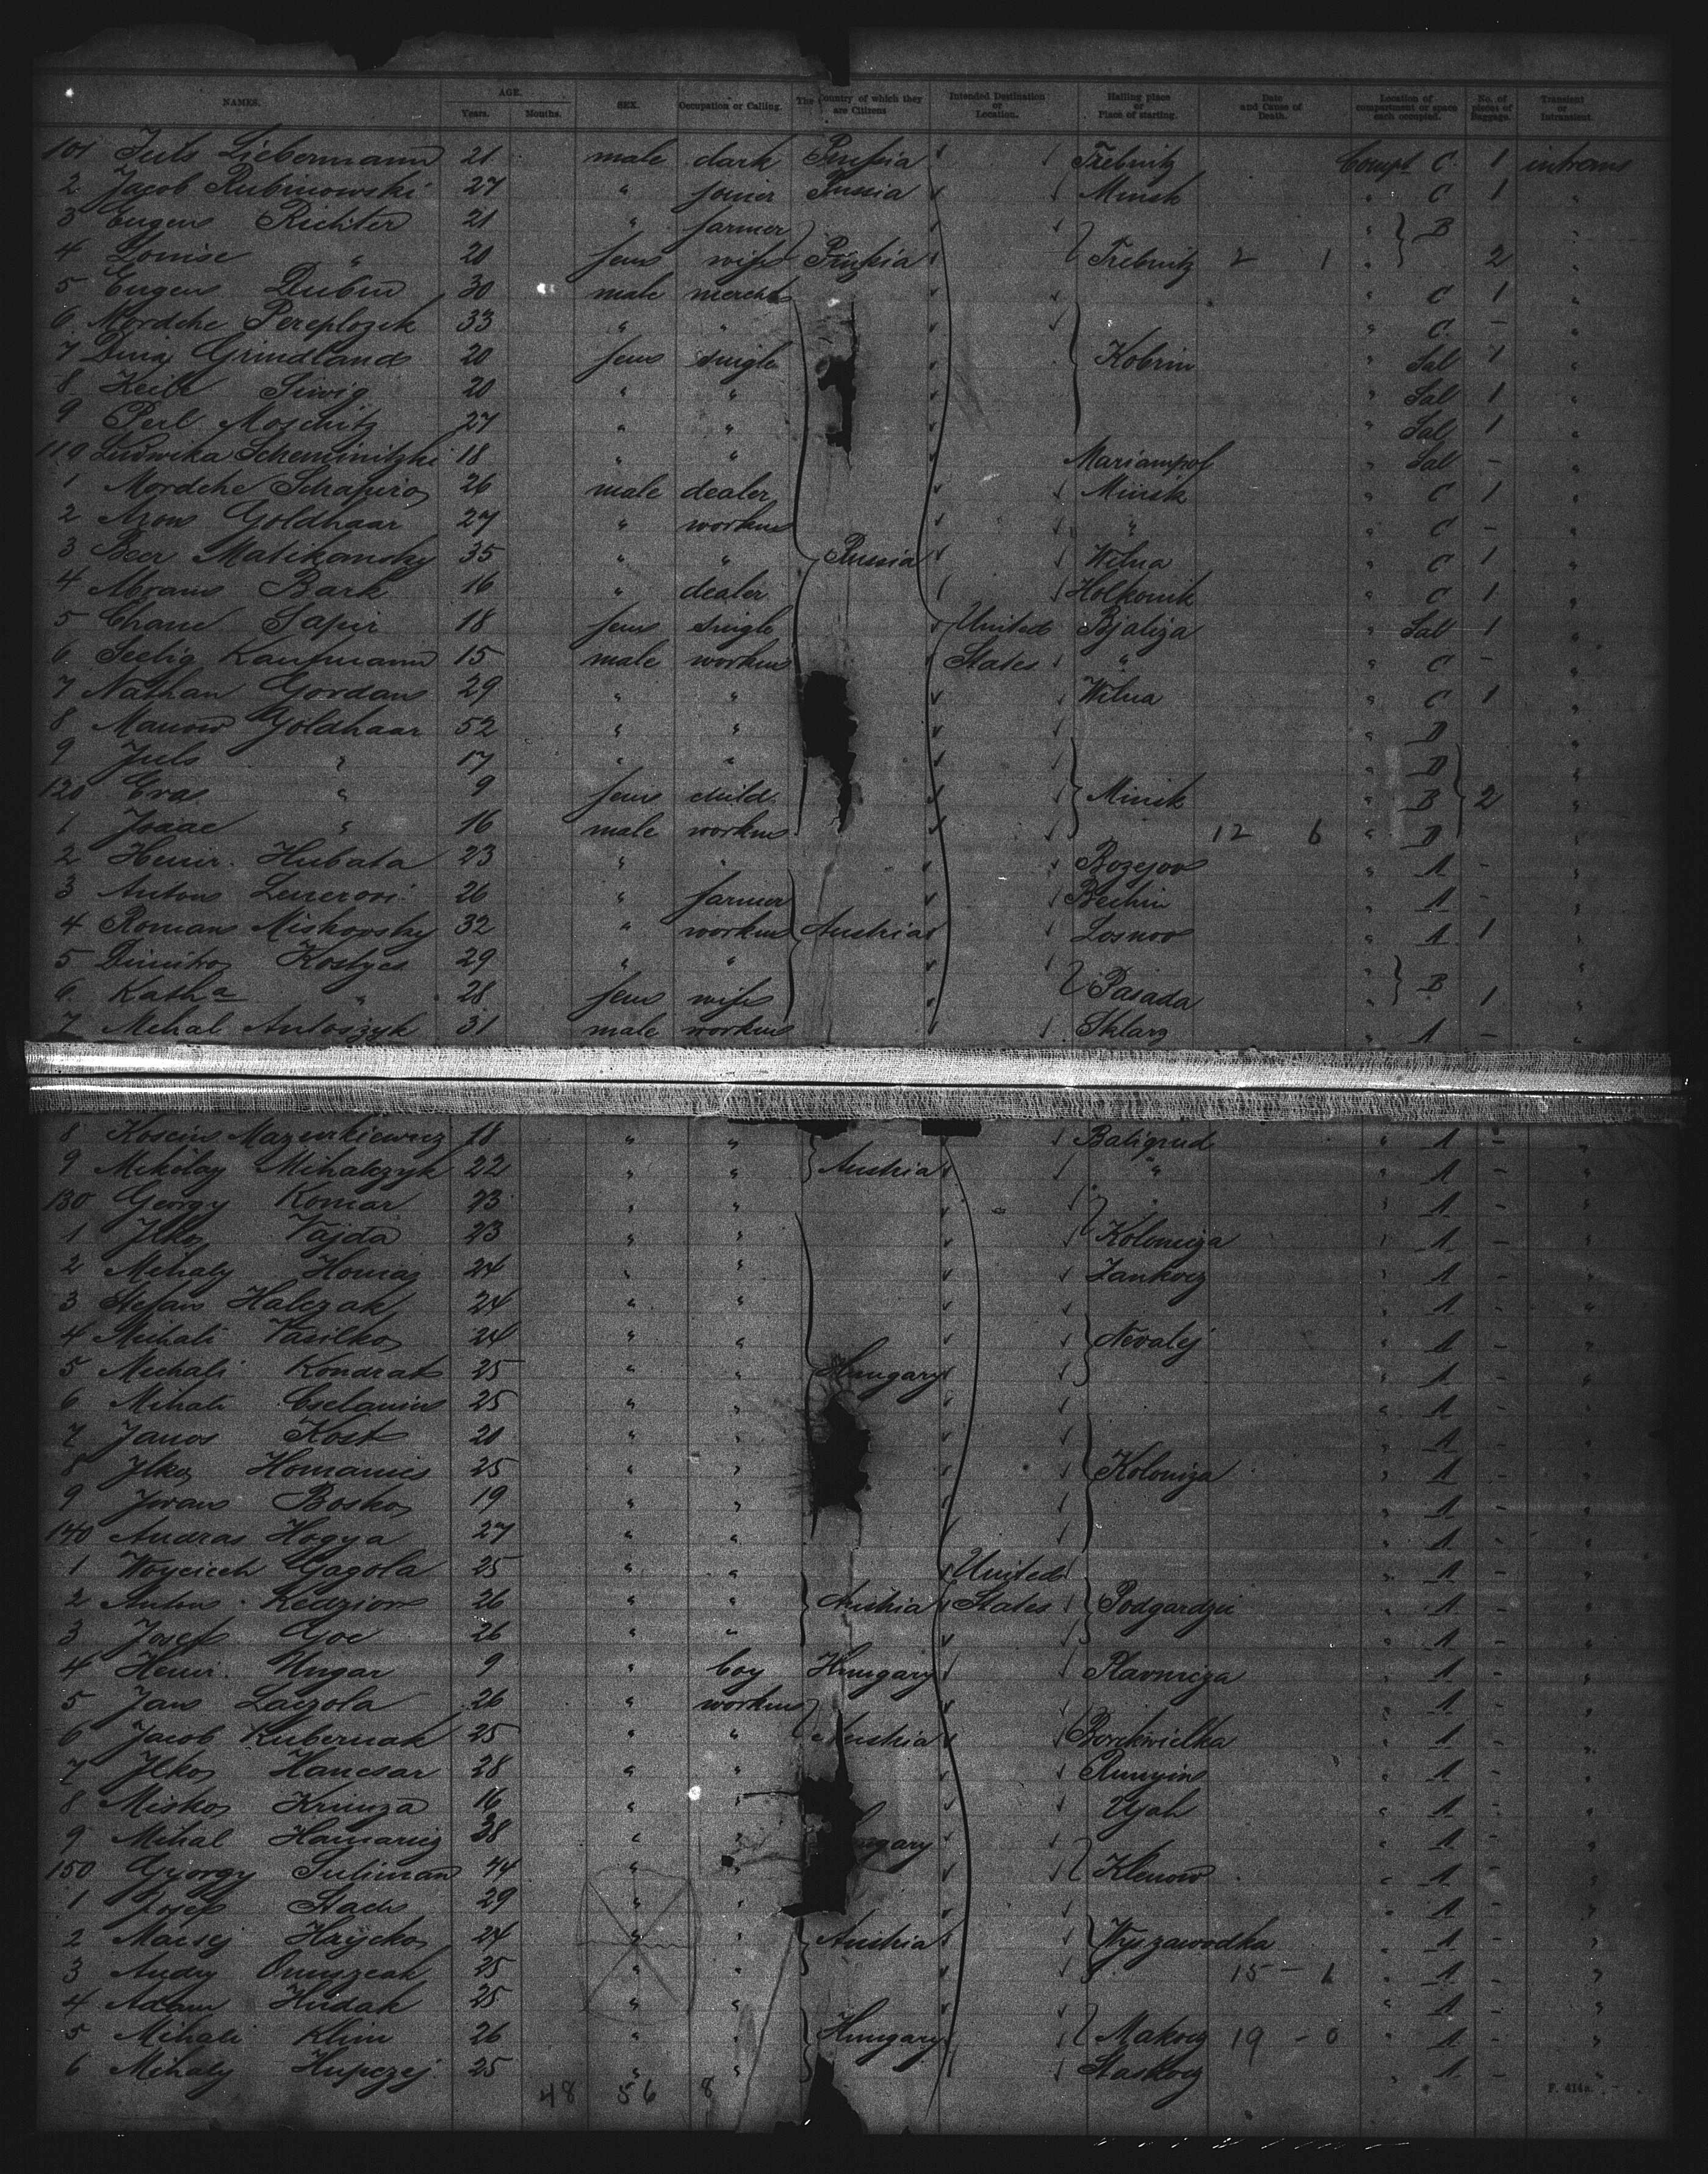 NAMES. AGE. Years. Months. SEX. Occupation or Calling. The Country of which they are Citizens Intended Destination or Location. Hailing place or Place of starting. Date and Cause of Death. Location of compartment or space each occupied. No. of pieces of Baggage. Transient or Intransient.
101 Juls Liebermann 21 male clark Prussia Trebnitz Compt C 1 intrans
2 Jacob Rubinowski 27 " joiner Russia Minsk " C 1 "
3 Eugen Richter 21 " farmer " B "
4 Louise " 20 fem wife Prussia Trebnitz 2 1 " 2 "
5 Eugen Dubin 30 male mercht " C 1 "
6 Mordche Pereplozik 33 " " " C - "
7 Dina Grindland 20 fem single Kobrin " Sal 1 "
8 Keile Siwig 20 " " " Sal 1 "
9 Perl Moschitz 27 " " " Sal 1 "
110 Ludwika Scheminitzki 18 " " Mariampol " Sal - "
1 Mordche Schapiro 26 male dealer Minsk " C 1 "
2 Aron Goldhaar 27 " workm " " C - "
3 Beer Malikansky 35 " " Russia Wilna " C 1 "
4 Abram Bark 16 " dealer Holkonik " C 1 "
5 Chane Sapir 18 fem single United Bjaliza " Sal 1 "
6 Seelig Kaufmann 15 male workm States " " C - "
7 Nathan Gordan 29 " " Wilna " C 1 "
8 Goldhaar 52 " " " D "
9 Juls " 17 " " " D "
120 Eva " 9 fem child Minsk " B 2 "
1 Isaac " 16 male workm 12 6 " D "
2 Heinr. Hubata 23 " " Bozejov " A - "
3 Anton 26 " farmer Bechin " A - "
4 Roman Miskovsky 32 " workm Austria Losnov " A 1 "
5 Dimitro Kostyes 29 " " " B "
6 Katha " 28 fem wife Pasada " 1 "
7 Mihal Antoszyk 31 male workm Sklary " A - "
8 Mazurkiewicz 18 " " Baligrud " A - "
9 Mikolay Mihalczyk 22 " " Austria " " A - "
130 Georgy Komar 23 " " " A - "
1 Ilko Vajda 23 " " Koloniza " A - "
2 Mihaly Homa 24 " " Zankocz " A - "
3 Stefan Halczak 24 " " " A - "
4 Mihali Vasilko 24 " " Nevalej " A - "
5 Michali Kondrat 25 " " Hungary " A - "
6 Mihali 25 " " " A -
7 Janos Kost 20 " " " A -
8 Ilko Homanics 25 " " Koloniza " A - "
9 Iwan Bosko 19 " " " A - "
140 Andras Hogya 27 " " " A - "
1 Woyciech Gagola 25 " " United " A - "
2 Anton Kedzior 26 " " Austria States Podgardzie " A - "
3 Josef Goc 26 " " " A - "
4 Heinr. Ungar 9 " boy Hungary " A - "
5 Jan Laczola 26 " workm " A - "
6 Jacob Kubernak 25 " " Austria Borekwielka " A - "
7 Ilko Hancsar 28 " " Runyin " A - "
8 Misko 16 " " Ujak " A - "
9 Mihal 38 " " gary " A - "
150 Gyorgy Suliman 44 " " Klenow " A - "
1 Josef Stach 29 " " " A - "
2 Maciej Hrycko 24 " " Austria Wyszawodka " A - "
3 Andry 25 " " 15 - 1 " A - "
4 Adam Hudak 25 " " " A - "
5 Mihali Klim 26 " " Hungary Makocz 19 - 0 " A - "
6 Mihaly Hupczej 25 " " Staskocz " A - "
48 56 8
F. 414a.